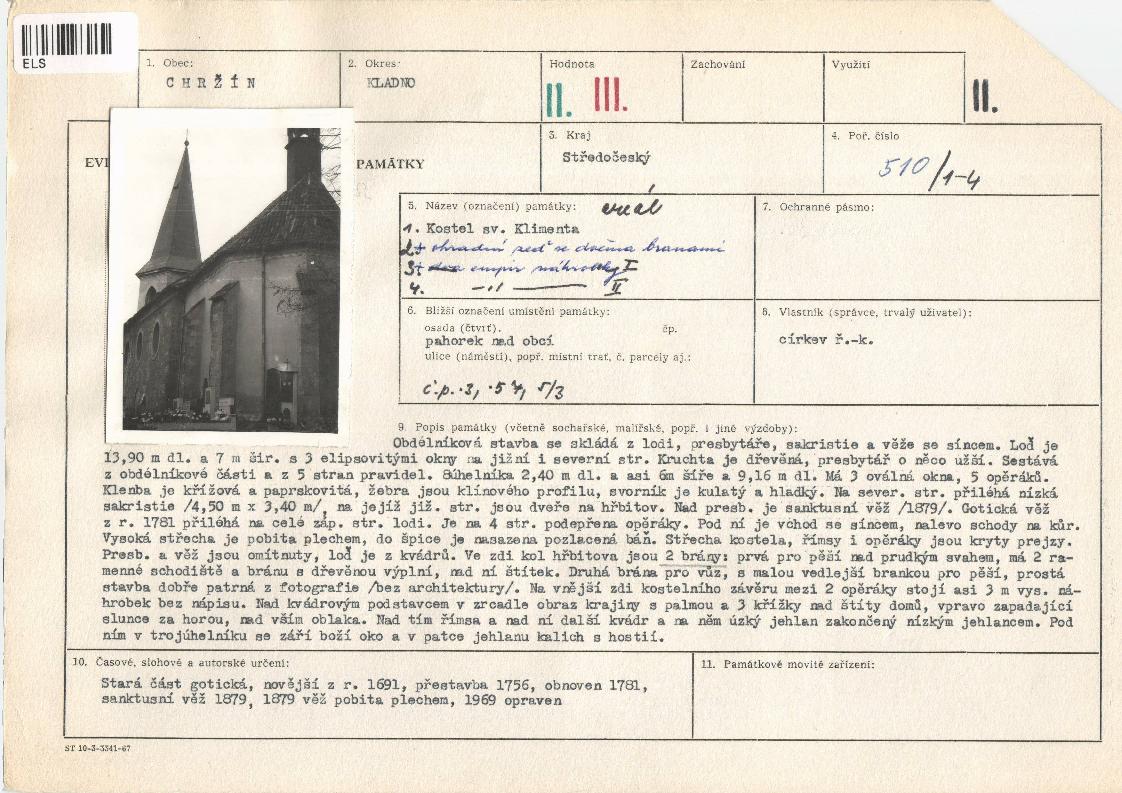 ELS
1. Obec:
CHRŽÍN
2. Okres:
KLADNO
Hodnota
II. III.
Zachování
Využití
II.
EVI
PAMÁTKY
3. Kraj
Středočeský
4. Poř. číslo
510/1-4
5. Název (označení) památky: areál
1. Kostel sv. Klimenta
2+ ohradní zeď se dvěma branami
3+ dva empír náhrobky I
4. -„- II
7. Ochranné pásmo:
6. Bližší označení umístění památky:
osada (čtvrť). čp.
pahorek nad obcí
ulice (náměstí), popř. místní trať, č. parcely aj.:
č.p. 3, 57, 5/3
8. Vlastník (správce, trvalý uživatel):
církev ř.-k.
9. Popis památky (včetně sochařské, malířské, popř. i jiné výzdoby):
Obdélníková stavba se skládá z lodi, presbytáře, sakristie a věže se síncem. Loď je
13,90 m dl. a 7 m šir. s 3 elipsovitými okny na jižní i severní str. Kruchta je dřevěná, presbytář o něco užší. Sestává
z obdélníkové části a z 5 stran pravidel. 8úhelníka 2,40 m dl. a asi 6m šíře a 9,16 m dl. Má 3 oválná okna, 5 opěráků.
Klenba je křížová a paprskovitá, žebra jsou klínového profilu, svorník je kulatý a hladký. Na sever. str. přiléhá nízká
sakristie /4,50 m x 3,40 m/, na jejíž již. str. jsou dveře na hřbitov. Nad presb. je sanktusní věž /1879/. Gotická věž
z r. 1781 přiléhá na celé záp. str. lodi. Je na 4 str. podepřena opěráky. Pod ní je vchod se síncem, nalevo schody na kůr.
Vysoká střecha je pobita plechem, do špice je nasazena pozlacená báň. Střecha kostela, římsy i opěráky jsou kryty prejzy.
Presb. a věž jsou omítnuty, loď je z kvádrů. Ve zdi kol hřbitova jsou 2 brány: prvá pro pěší nad prudkým svahem, má 2 ra-
menné schodiště a bránu s dřevěnou výplní, nad ní štítek. Druhá brána pro vůz, s malou vedlejší brankou pro pěší, prostá
stavba dobře patrná z fotografie /bez architektury/. Na vnější zdi kostelního závěru mezi 2 opěráky stojí asi 3 m vys. ná-
hrobek bez nápisu. Nad kvádrovým podstavcem v zrcadle obraz krajiny s palmou a 3 křížky nad štíty domů, vpravo zapadající
slunce za horou, nad vším oblaka. Nad tím římsa a nad ní další kvádr a na něm úzký jehlan zakončený nízkým jehlancem. Pod
ním v trojúhelníku se září boží oko a v patce jehlanu kalich s hostií.
10. Časové, slohové a autorské určení:
Stará část gotická, novější z r. 1691, přestavba 1756, obnoven 1781,
sanktusní věž 1879, 1879 věž pobita plechem, 1969 opraven
11. Památkové movité zařízení:
ST 10-3-3341-67